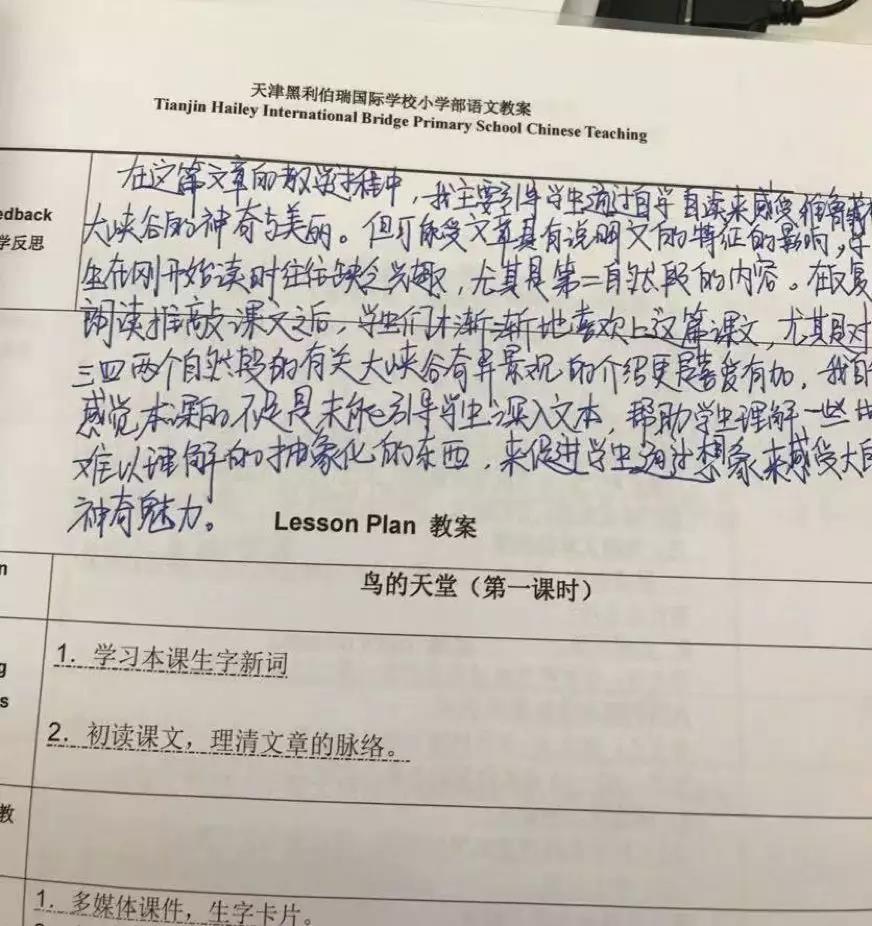 天津黑利伯瑞国际学校小学部语文教案
Tianjin Hailey International Bridge Primary School Chinese Teaching
edback
学反思
在这篇文章的教学过程中，我主要引导学生通过自学自读来感受雅鲁藏
大峡谷的神奇与美丽。但可能受文章具有说明文的特征的影响，学
生在刚开始读时往往缺乏兴趣，尤其是第二自然段的内容。在反复
朗读推敲课文之后，学生们才渐渐地喜欢上这篇课文，尤其是对
三四两个自然段的有关大峡谷奇异景观的介绍更是喜爱有加，我自
感觉本课的不足是未能引导学生深入文本，帮助学生理解一些
难以理解的抽象化的东西，来促进学生通过想象来感受大自
神奇魅力。
Lesson Plan 教案
n
鸟的天堂（第一课时）
g
s
1. 学习本课生字新词
2. 初读课文，理清文章的脉络。
教
1. 多媒体课件，生字卡片。